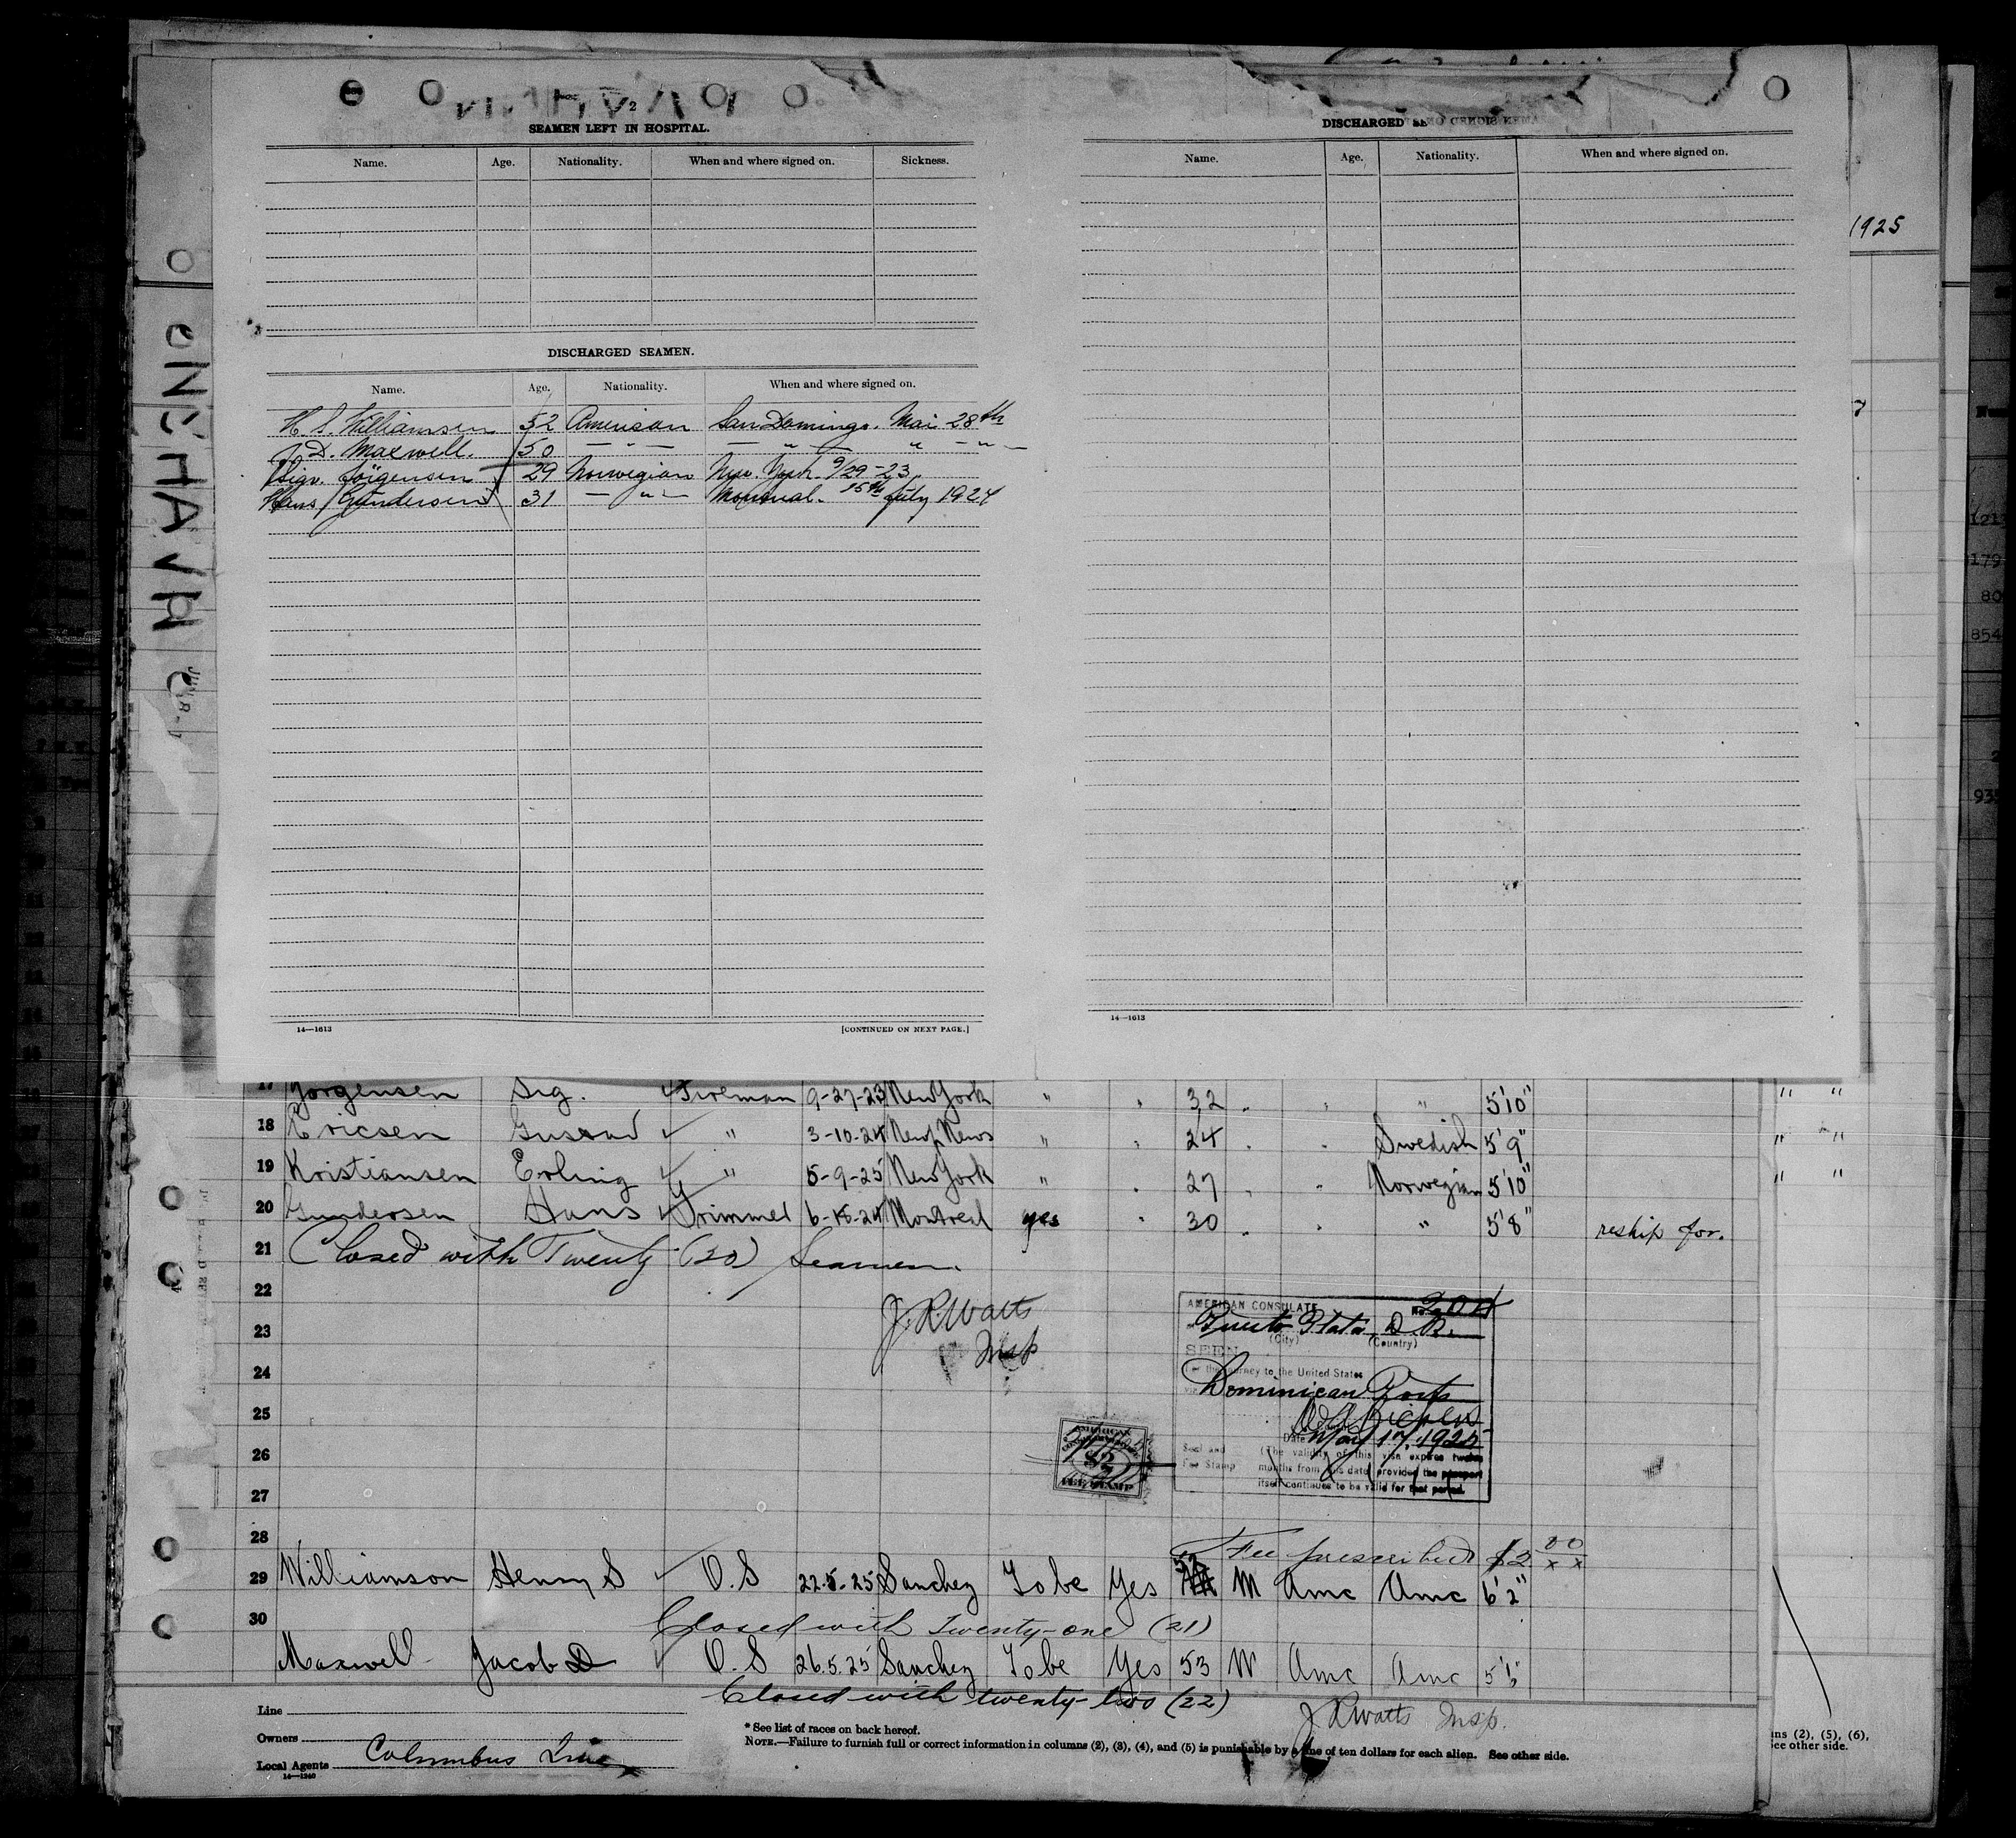 2
SEAMEN LEFT IN HOSPITAL.
Name. Age. Nationality. When and where signed on. Sickness.
DISCHARGED SEAMEN.
Name. Age. Nationality. When and where signed on.
H. S. Williamsen 52 American San Domingo. Mai 28th
J. D. Maxwell. 50 — " — — " — " — " —
Sigv. Jörgensen 29 Norwegian New York 9/29-23.
Hans Gundersen 31 — " — Montreal. 15th July 1924
14—1613 [CONTINUED ON NEXT PAGE.]
DISCHARGED
Name. Age. Nationality. When and where signed on.
14—1613
1925
17 Jorgensen Sig. Fireman 9-27-23 New York " " 32 " " " 5'10"
18 Ericsen Gustav " 3-10-24 Newp News " " 24 " " Swedish 5'9"
19 Kristiansen Erling " 5-9-25 New York " " 27 " " Norwegian 5'10"
20 Gundersen Hans Trimmer 6-18-24 Montreal yes " 30 " " " 5'8" reship for.
21 Closed with Twenty (20) Seamen.
22
J. R. Watts
23
Insp
24
25
26
27
28
AMERICAN CONSULATE
Puerto Plata, D. R.
(City) (Country)
SEEN
For the journey to the United States
via Dominican Ports
Date May 17, 1925
Seal and Fee Stamp
(The validity of this visa expires twelve
months from this date provided the passport
itself continues to be valid for that period.
AMERICAN
$2
FEE STAMP
Fee prescribed $2 00/xx
29 Williamson Henry S O.S 22-5-25 Sanchez To be Yes 52 M Amc Amc 6'2"
30 Closed with twenty-one (21)
Maxwell Jacob D O.S 26.5.25 Sanchez To be Yes 53 M Amc Amc 5'1"
Closed with twenty-two (22)
J R Watts Insp.
Line
Owners
Local Agents Columbus Line
14—1240
* See list of races on back hereof.
NOTE.—Failure to furnish full or correct information in columns (2), (3), (4), and (5) is punishable by a fine of ten dollars for each alien. See other side.
(2), (5), (6),
see other side.
121
179
80
854
2
93